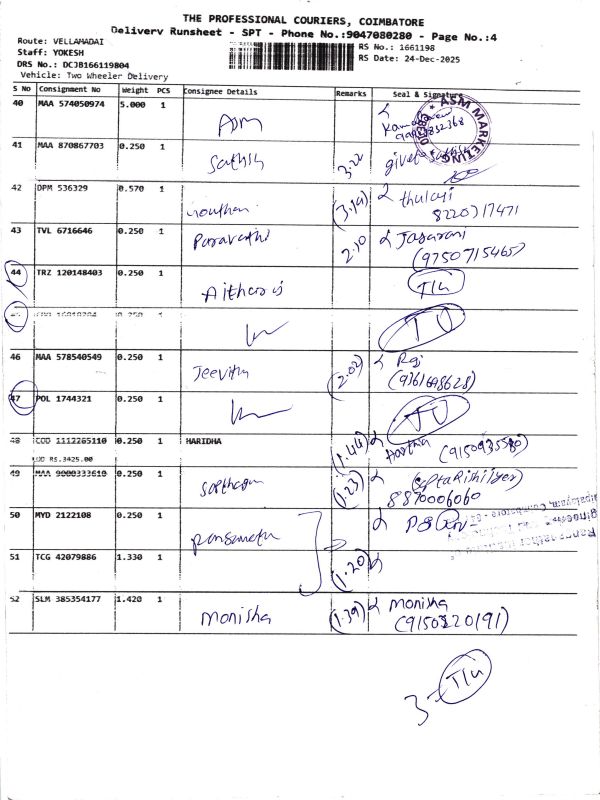 THE PROFESSIONAL COURIERS, COIMBATORE
Delivery Runsheet - SPT - Phone No.:9047080280 - Page No.:4
Route: VELLAMADAI
Staff: YOKESH
DRS No.: DCJB166119804
Vehicle: Two Wheeler Delivery
RS No.: 1661198
RS Date: 24-Dec-2025
S No Consignment No Weight PCS Consignee Details Remarks Seal & Signature
40 MAA 574050974 5.000 1 ADM
ASM MARKETING
41 MAA 870867703 0.250 1 Sathish 3.22
42 DPM 536329 0.570 1 (3.14) thulasi
8220317471
43 TVL 6716646 0.250 1 Paravathi 2.10 Jasarani
(9750715465)
44 TRZ 120148403 0.250 1 T/u
45 0.250 1 TU
46 MAA 578540549 0.250 1 Jeevitha (2.02) Raj
(9361698628)
47 POL 1744321 0.250 1 TU
48 COD 1112265110 0.250 1 HARIDHA (1.44) (9150935580)
COD RS.3425.00
49 MAA 9000333610 0.250 1 (1.23)
8870006060
50 MYD 2122108 0.250 1
51 TCG 42079886 1.330 1 (1.20)
52 SLM 385354177 1.420 1 Monisha (1.39) Monisha
(9150220191)
3 - T/u